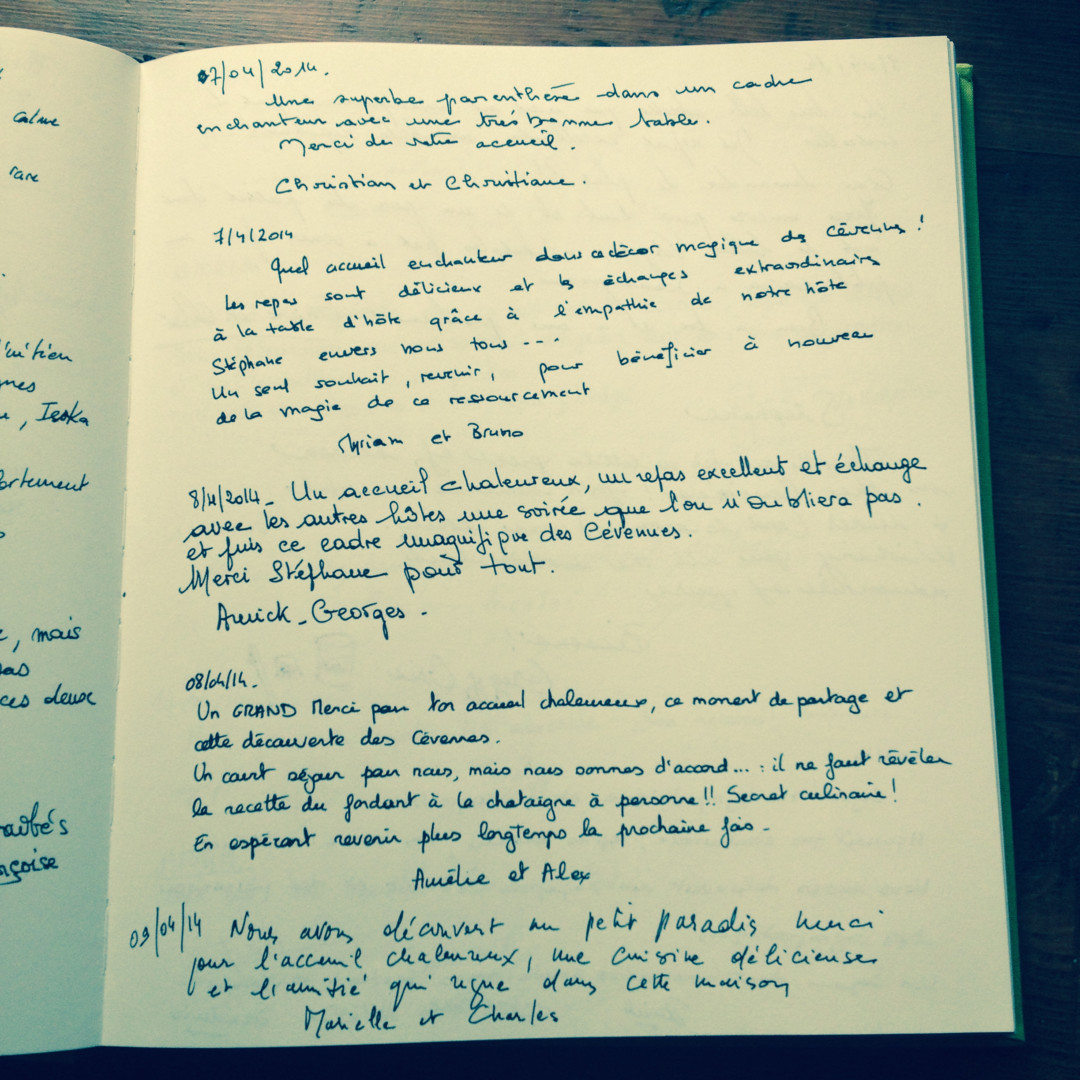 calme
rare
Ieska
mais
ces deux
07/04/2014.
Une superbe parenthèse dans un cadre
enchanteur avec une très bonne table.
Merci de votre accueil.
Christian et Christiane.
7/4/2014
Quel accueil enchanteur dans ce décor magique des Cévennes !
Les repas sont délicieux et les échanges extraordinaires
à la table d'hôte grâce à l'empathie de notre hôte
Stéphane envers nous tous ---
Un seul souhait, revenir, pour bénéficier à nouveau
de la magie de ce ressourcement
Myriam et Bruno
8/4/2014_ Un accueil chaleureux, un repas excellent et échange
avec les autres hôtes une soirée que l'on n'oubliera pas.
et puis ce cadre magnifique des Cévennes.
Merci Stéphane pour tout.
Annick_Georges.
08/04/14.
Un GRAND Merci pour ton accueil chaleureux, ce moment de partage et
cette découverte des Cévennes.
Un court séjour pour nous, mais nous sommes d'accord... : il ne faut révéler
la recette du fondant à la chataigne à personne!! Secret culinaire!
En espérant revenir plus longtemps la prochaine fois.
Amélie et Alex
09/04/14 Nous avons découvert un petit paradis merci
pour l'accueil chaleureux, une cuisine délicieuse
et l'amitié qui règne dans cette maison
Marielle et Charles